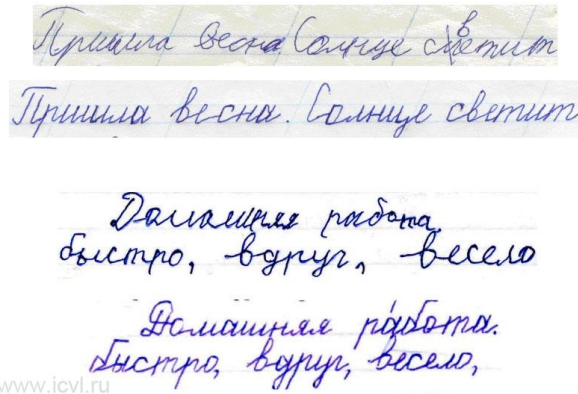 Пришла весна Солнце светит
Пришла весна. Солнце светит
Домашняя работа.
быстро, вдруг, весело
Домашняя работа.
быстро, вдруг, весело,
www.icvl.ru